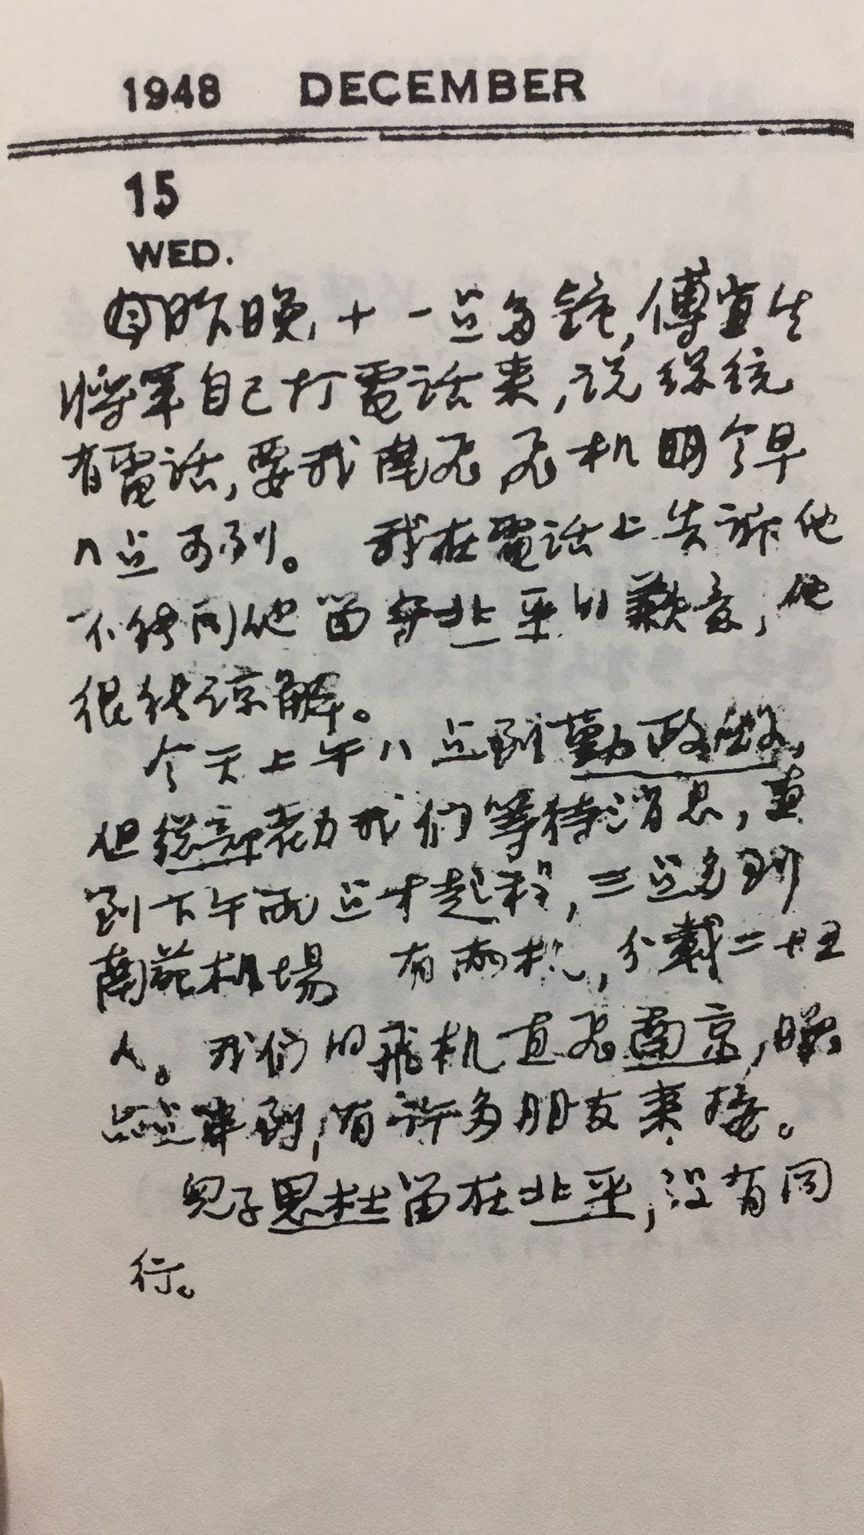 1948 DECEMBER
15
WED.
昨晚十一点多鐘,傅宜生
將軍自己打電話来,说總统
有電話,要我南飞,飞机今早
八点可到。我在電話上告訴他
不能同他留守北平的歉意,他
很能谅解。
今天上午八点到勤政殿,
但總部劝我们等待消息,直
到下午两点才起程,三点多到
南苑机場 有兩机,分載二十五
人。我们的飛机直飞南京,晚
六点半到,有許多朋友来接。
兒子思杜留在北平,没有同
行。